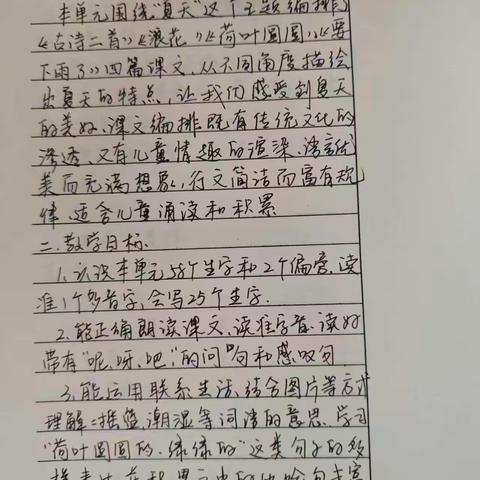 本单元围绕"夏天"这个主题编排
《古诗二首》《浪花》《荷叶圆圆》《要
下雨了》四篇课文,从不同角度描绘
出夏天的特点,让我们感受到夏天
的美好,课文编排既有传统文化的
渗透,又有儿童情趣的渲染,语言优
美而充满想象,行文简洁而富有规
律,适合儿童诵读和积累
二、教学目标
1.认识本单元58个生字和2个偏旁,读
准1个多音字,会写25个生字.
2.能正确朗读课文,读准字音,读好
带有"呢、呀、吧"的问句和感叹句
3.能运用联系生活,结合图片等方式
理解"摇篮、潮湿等词语的意思.学习
"荷叶圆圆的,绿绿的"这类句子的多